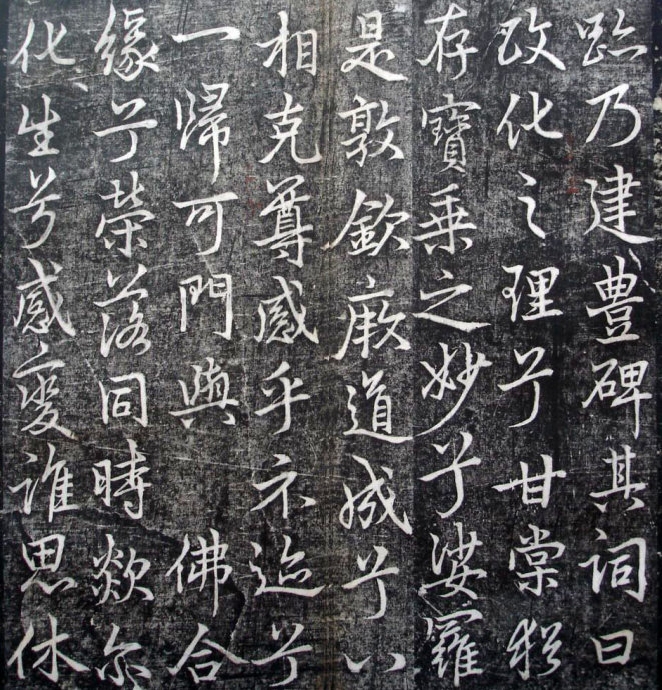 跡乃建豐碑其詞曰
政化之理兮甘棠猶
存寶乗之妙兮娑羅
是敦欽厥道成兮八
相克尊感乎示迹兮
一歸可門與 佛合
緣兮榮落同時歘尒
化生兮感變誰思休